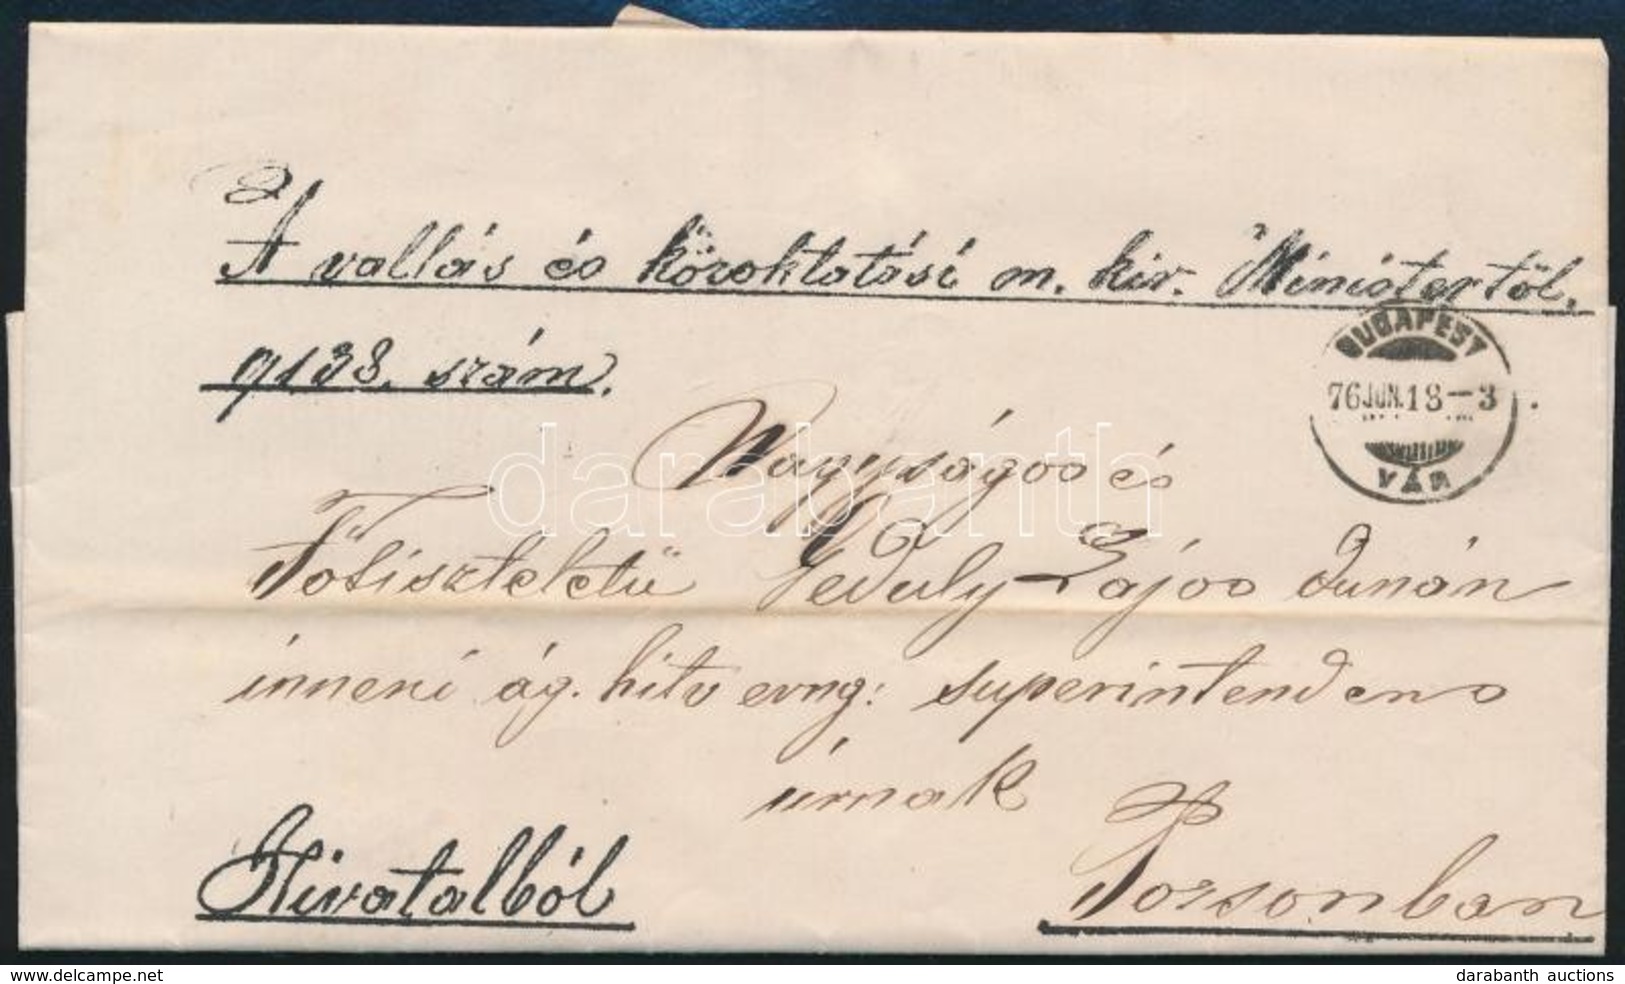 A vallás és közoktatási m. kir. Ministertől.
9138. szám.
BUDAPEST
76 JUN. 18-3
VÁR
Nagyságos és
Főtiszteletű Geduly Lajos dunán
inneni ág. hitv evng: superintendens
úrnak
Hivatalból
Pozsonban
darabanth
www.delcampe.net
darabanth auctions